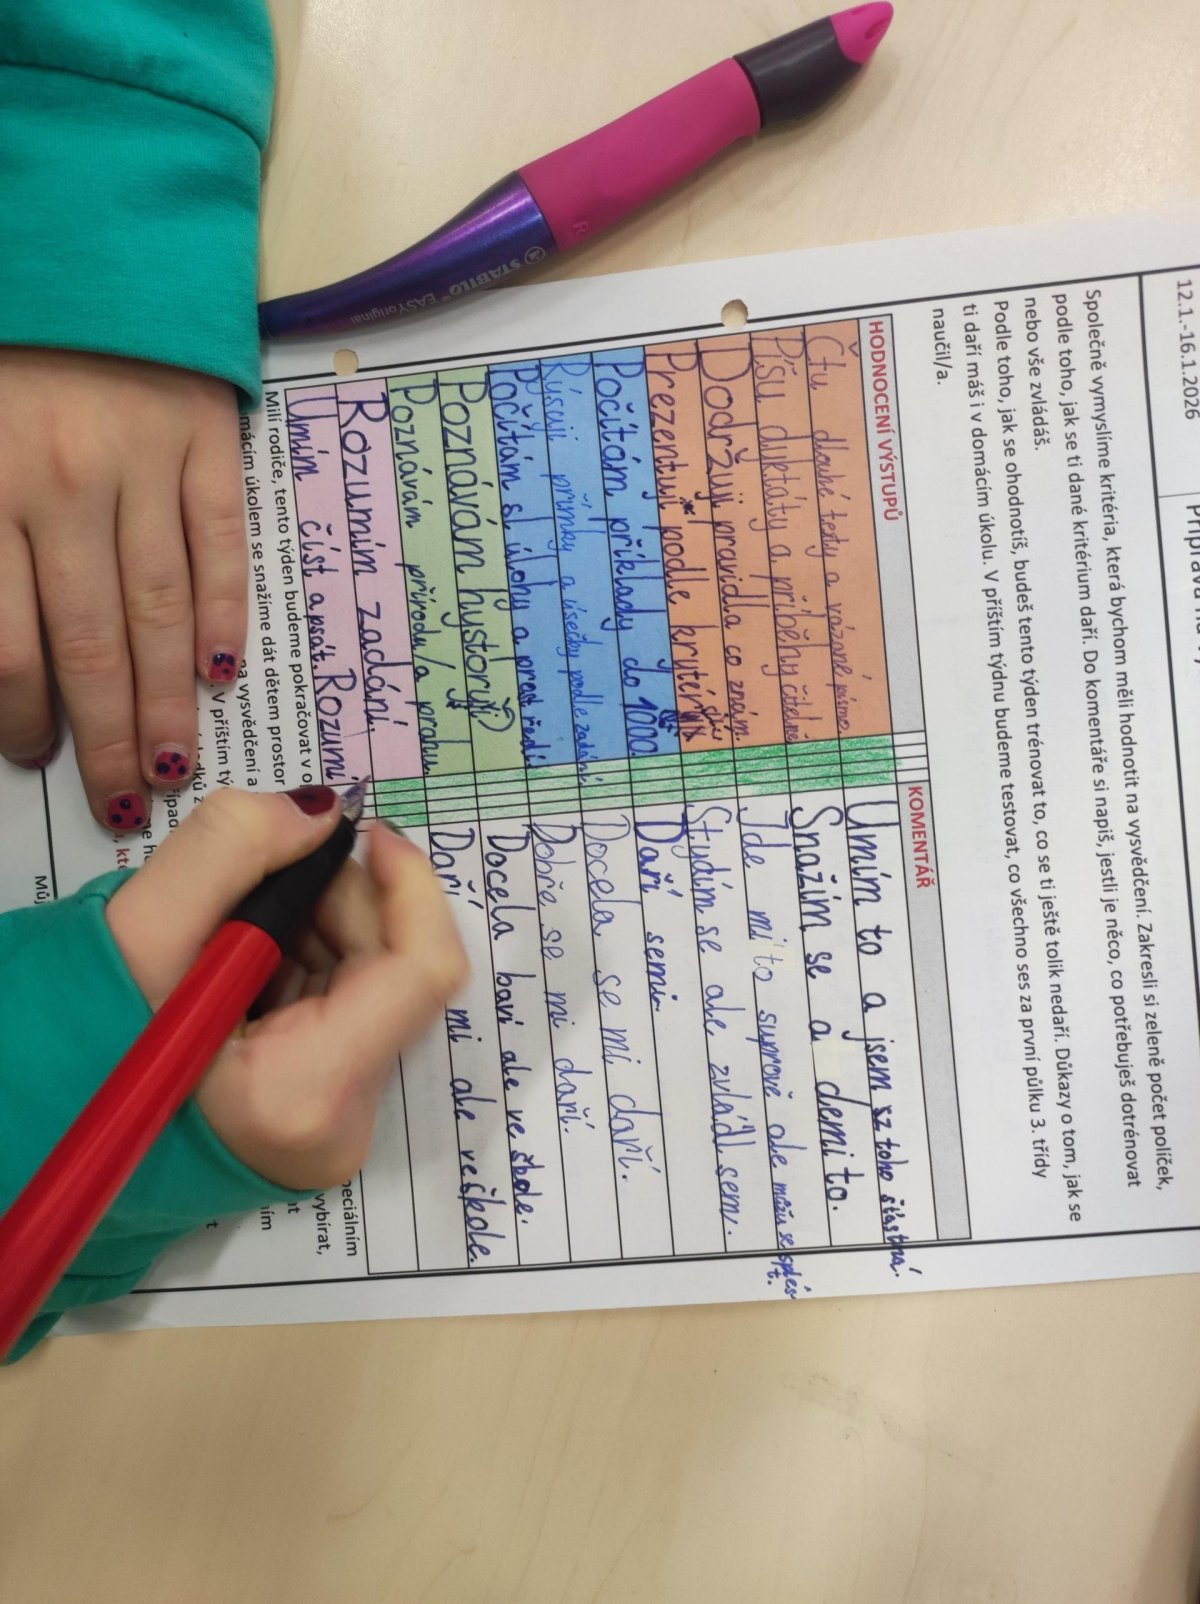 12.1.-16.1.2026
Společně vymyslíme kritéria, která bychom měli hodnotit na vysvědčení. Zakresli si zeleně počet políček,
podle toho, jak se ti dané kritérium daří. Do komentáře si napiš, jestli je něco, co potřebuješ dotrénovat
nebo vše zvládáš.
Podle toho, jak se ohodnotíš, budeš tento týden trénovat to, co se ti ještě tolik nedaří. Důkazy o tom, jak se
ti daří máš i v domácím úkolu. V příštím týdnu budeme testovat, co všechno ses za první půlku 3. třídy
naučil/a.
HODNOCENÍ VÝSTUPŮ KOMENTÁŘ
Čtu dlouhé texty a vázané písmo. Umím to a jsem sz toho šťastná.
Píšu diktáty a příběhy čitelně Snažím se a demi to.
Dodržuji pravidla co znám. Jde mi to suprově ale můžu se splés-
t.
Prezentuji podle krytér Stydím se ale zvládl semi.
Počítám příklady do 1000. Daří semi.
Rýsuji přímky a úsečky podle zadání Docela se mi daří.
Počítám sl. úlohy a Dobře se mi daří.
Poznávám hystorji Docela baví ale ve škole.
Poznávám přírodu/a prahu. Daří mi ale ve škole.
Rozumím zadání.
Umím číst a psát. Rozumí
Milí rodiče, tento týden budeme pokračovat v
domácím úkolem se snažíme dát dětem prostor
na vysvědčení a
V příštím
peciálním
vybírat,
STABILO EASYoriginal